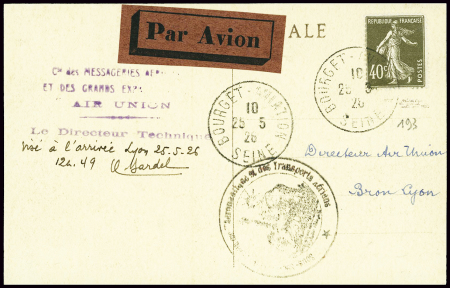 Par Avion
ALE
RÉPUBLIQUE FRANÇAISE
40c
POSTES
Cie des MESSAGERIES AÉR
ET DES GRANDS EX
AIR UNION
Le Directeur Technique
Visé à l'arrivée Lyon 25.5.26
12h.49
BOURGET-AVIATION
10
25-5
26
SEINE
BOURGET-
10
25-5
26
SEINE
193
Directeur Air Union
Bron Lyon
des Transports aériens